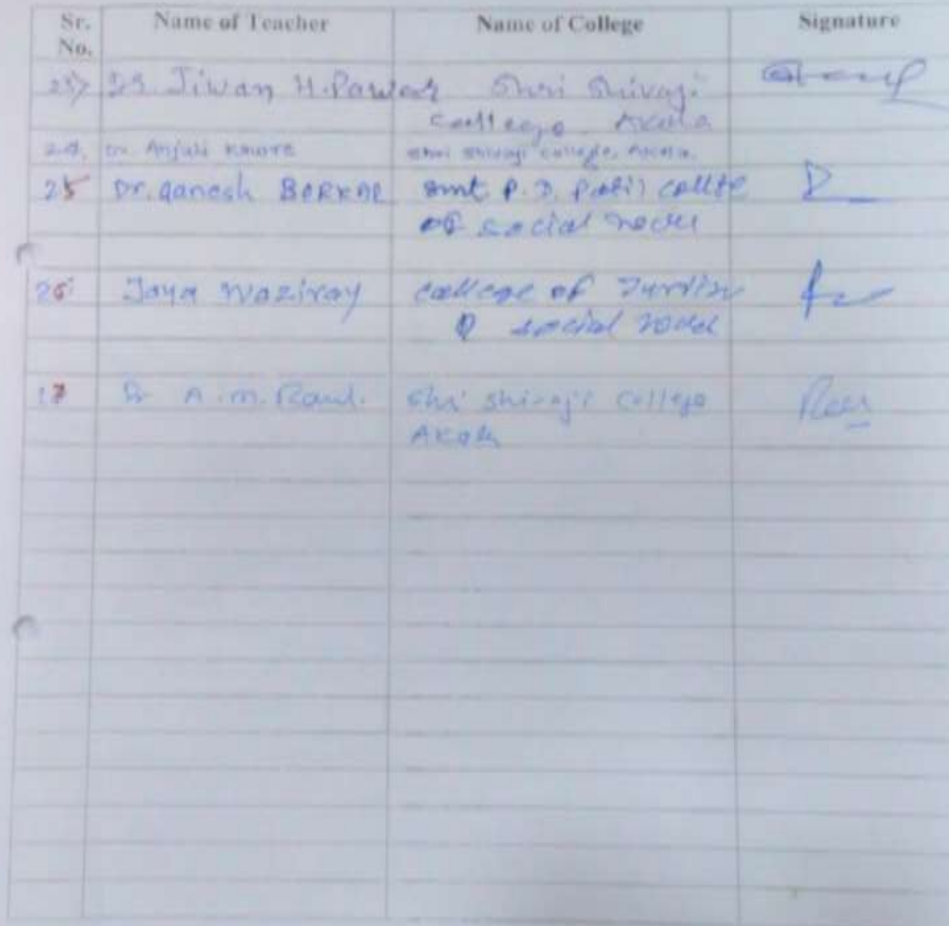 Sr. No. Name of Teacher Name of College Signature
23) Dr. Jiwan H. Pawar Shri Shivaji
College Akola
24. Dr. Anjali Kaware Shri Shivaji College, Akola.
25 Dr. Ganesh BORKAR Smt P. D. Patil
of social
26 Jaya college of
social
27 Dr A. m. Raul. Shri Shivaji College
Akola